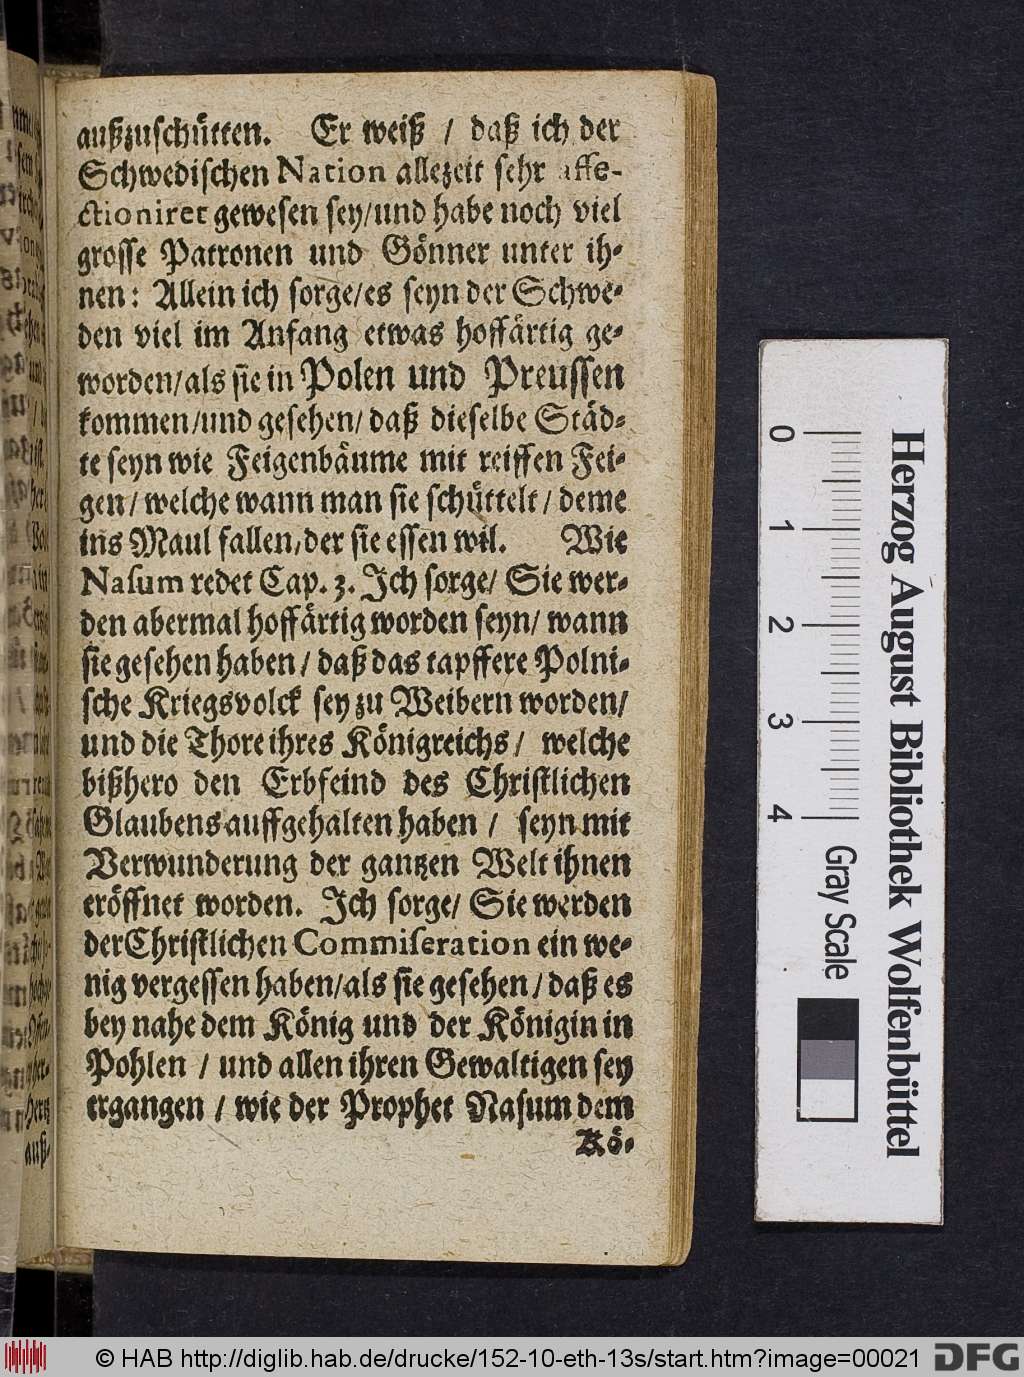 außzuschütten. Er weiß / daß ich der
Schwedischen Nation allezeit sehr affe-
ctioniret gewesen sey/und habe noch viel
grosse Patronen und Gönner unter ih-
nen: Allein ich sorge/es seyn der Schwe-
den viel im Anfang etwas hoffärtig ge-
worden/als sie in Polen und Preussen
kommen/und gesehen/ daß dieselbe Städ-
te seyn wie Feigenbäume mit reiffen Fei-
gen/ welche wann man sie schüttelt / deme
ins Maul fallen,der sie essen wil. Wie
Nasum redet Cap. 3. Ich sorge/ Sie wer-
den abermal hoffärtig worden seyn/ wann
sie gesehen haben / daß das tapffere Polni-
sche Kriegsvolck sey zu Weibern worden/
und die Thore ihres Königreichs / welche
bißhero den Erbfeind des Christlichen
Glaubens auffgehalten haben / seyn mit
Verwunderung der gantzen Welt ihnen
eröffnet worden. Ich sorge/ Sie werden
der Christlichen Commiseration ein we-
nig vergessen haben/als sie gesehen / daß es
bey nahe dem König und der Königin in
Pohlen / und allen ihren Gewaltigen sey
ergangen / wie der Prophet Nasum dem
Kö-
auß-
0 1 2 3 4
Gray Scale
Herzog August Bibliothek Wolfenbüttel
© HAB http://diglib.hab.de/drucke/152-10-eth-13s/start.htm?image=00021
DFG